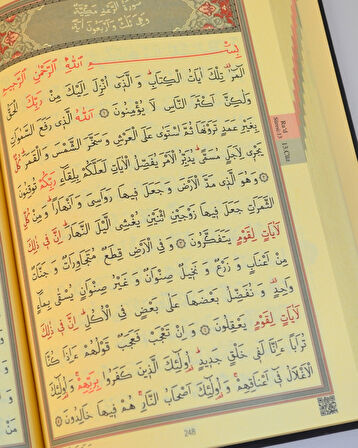 سورة الرعد مكية
وهى ثلث واربعون اية
بِسْــــمِ اللّٰهِ الرَّحْمٰنِ الرَّحِيمِ
الٓمٓرٰ تِلْكَ اٰيَاتُ الْكِتَابِ وَالَّذٖٓى اُنْزِلَ اِلَيْكَ مِنْ رَبِّكَ الْحَقُّ
وَلٰكِنَّ اَكْثَرَ النَّاسِ لَا يُؤْمِنُونَ ۝ اَللّٰهُ الَّذٖى رَفَعَ السَّمٰوَاتِ
بِغَيْرِ عَمَدٍ تَرَوْنَهَا ثُمَّ اسْتَوٰى عَلَى الْعَرْشِ وَسَخَّرَ الشَّمْسَ وَالْقَمَرَ كُلٌّ
يَجْرٖى لِاَجَلٍ مُسَمًّى يُدَبِّرُ الْاَمْرَ يُفَصِّلُ الْاٰيَاتِ لَعَلَّكُمْ بِلِقَٓاءِ رَبِّكُمْ تُوقِنُونَ
۝ وَهُوَ الَّذٖى مَدَّ الْاَرْضَ وَجَعَلَ فٖيهَا رَوَاسِىَ وَاَنْهَارًا وَمِنْ كُلِّ
الثَّمَرَاتِ جَعَلَ فٖيهَا زَوْجَيْنِ اثْنَيْنِ يُغْشِى الَّيْلَ النَّهَارَ اِنَّ فٖى ذٰلِكَ
لَاٰيَاتٍ لِقَوْمٍ يَتَفَكَّرُونَ ۝ وَفِى الْاَرْضِ قِطَعٌ مُتَجَاوِرَاتٌ وَجَنَّاتٌ
مِنْ اَعْنَابٍ وَزَرْعٌ وَنَخٖيلٌ صِنْوَانٌ وَغَيْرُ صِنْوَانٍ يُسْقٰى بِمَٓاءٍ
وَاحِدٍ وَنُفَضِّلُ بَعْضَهَا عَلٰى بَعْضٍ فِى الْاُكُلِ اِنَّ فٖى ذٰلِكَ
لَاٰيَاتٍ لِقَوْمٍ يَعْقِلُونَ ۝ وَاِنْ تَعْجَبْ فَعَجَبٌ قَوْلُهُمْ ءَاِذَا كُنَّا
تُرَابًا ءَاِنَّا لَفٖى خَلْقٍ جَدٖيدٍ اُولٰٓئِكَ الَّذٖينَ كَفَرُوا بِرَبِّهِمْ وَاُولٰٓئِكَ
الْاَغْلَالُ فٖٓى اَعْنَاقِهِمْ وَاُولٰٓئِكَ اَصْحَابُ النَّارِ هُمْ فٖيهَا خَالِدُونَ ۝
248
Ra'd
Suresi 13
13. Cüz